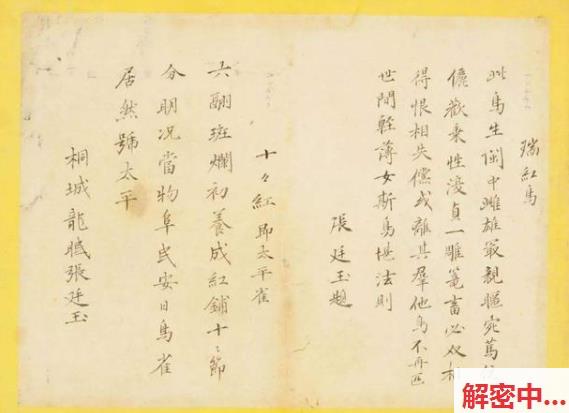 瑞紅鳥
此鳥生閩中雌雄最親暱宛篤
儷歡秉性貞一雕篭畜必双
得恨相失儻或離其羣他鳥不再匹
世間輕薄女斯鳥堪法則
張廷玉題
十々紅 即太平雀
六翮斑斕初養成紅鋪十々節
分明况當物阜民安日鳥雀
居然號太平
桐城龍眠張廷玉
解密中...